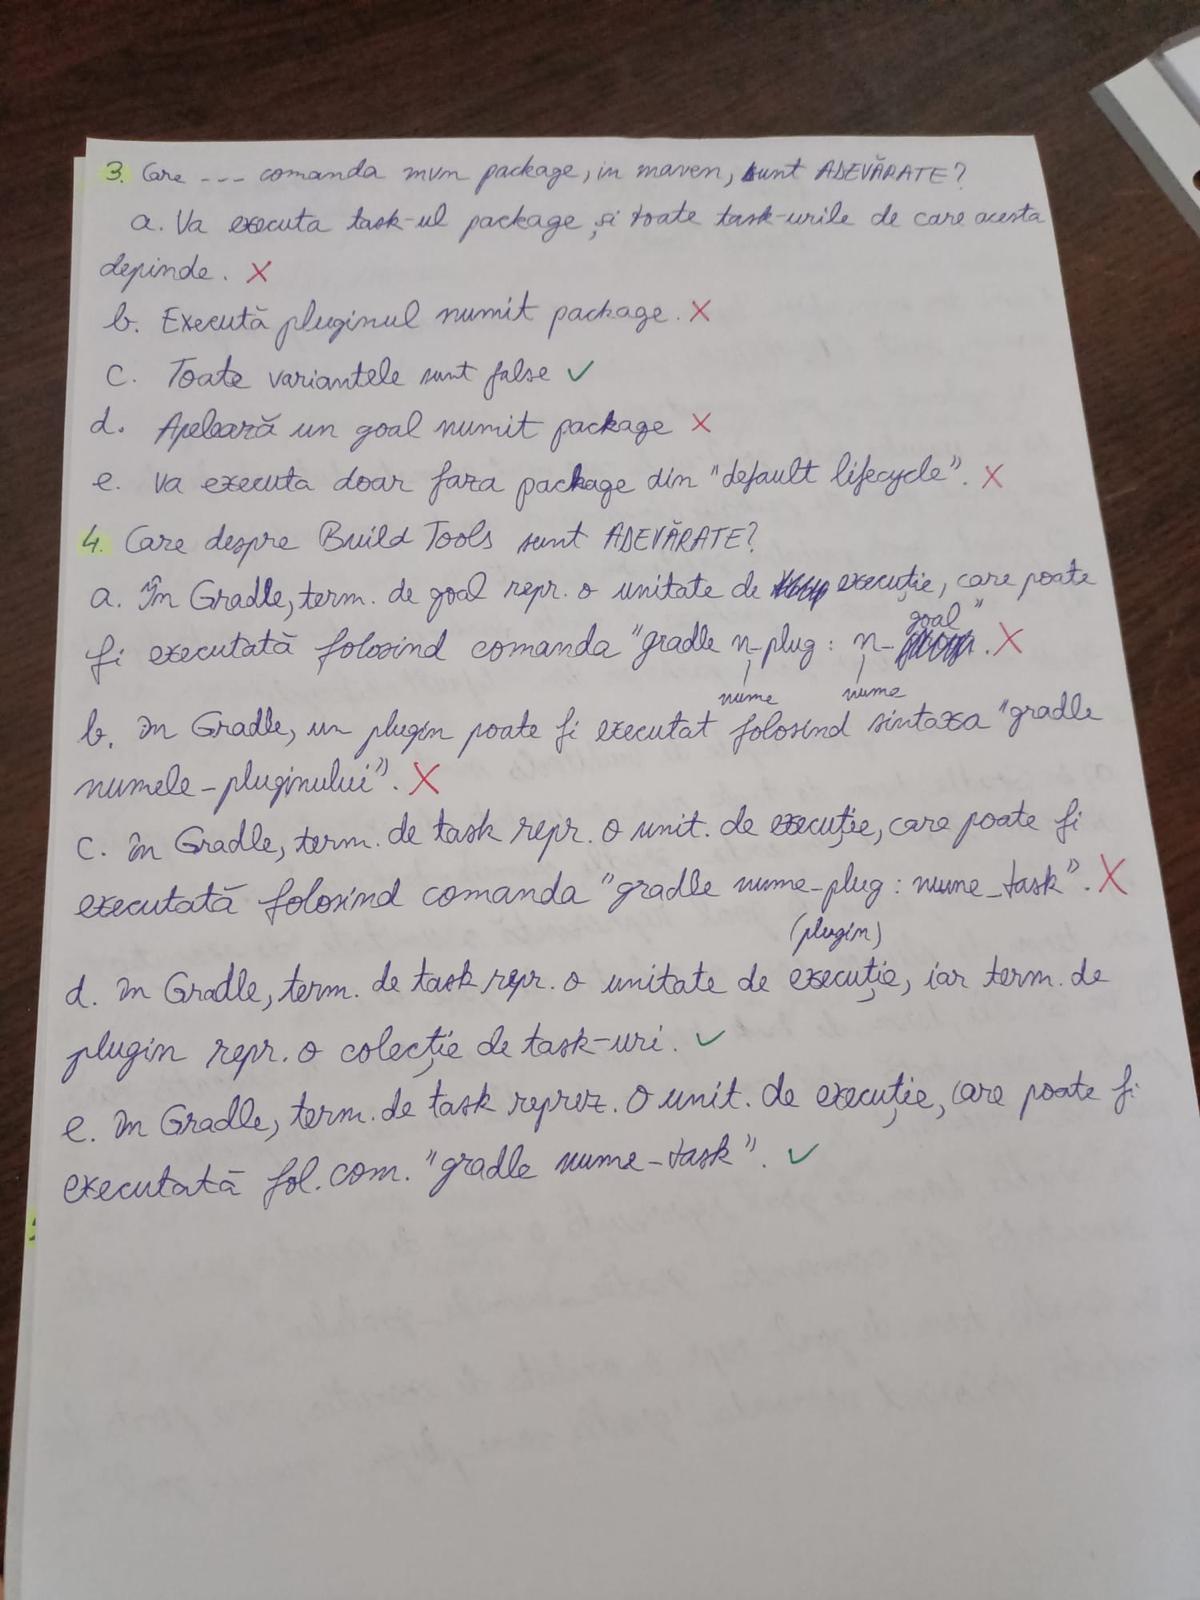 3. Care --- comanda mvn package, in maven, sunt ADEVĂRATE?
a. Va executa task-ul package și toate task-urile de care acesta
depinde. X
b. Execută pluginul numit package. X
c. Toate variantele sunt false ✓
d. Apelează un goal numit package X
e. va executa doar faza package din "default lifecycle". X
4. Care despre Build Tools sunt ADEVĂRATE?
a. În Gradle, term. de goal repr. o unitate de execuție, care poate
fi executată folosind comanda "gradle n-plug : n-goal". X
nume nume
b. În Gradle, un plugin poate fi executat folosind sintaxa "gradle
numele-pluginului". X
c. În Gradle, term. de task repr. o unit. de execuție, care poate fi
executată folosind comanda "gradle nume-plug : nume_task". X
(plugin)
d. În Gradle, term. de task repr. o unitate de execuție, iar term. de
plugin repr. o colecție de task-uri. ✓
e. În Gradle, term. de task reprez. o unit. de execuție, care poate fi
executată fol. com. "gradle nume-task". ✓